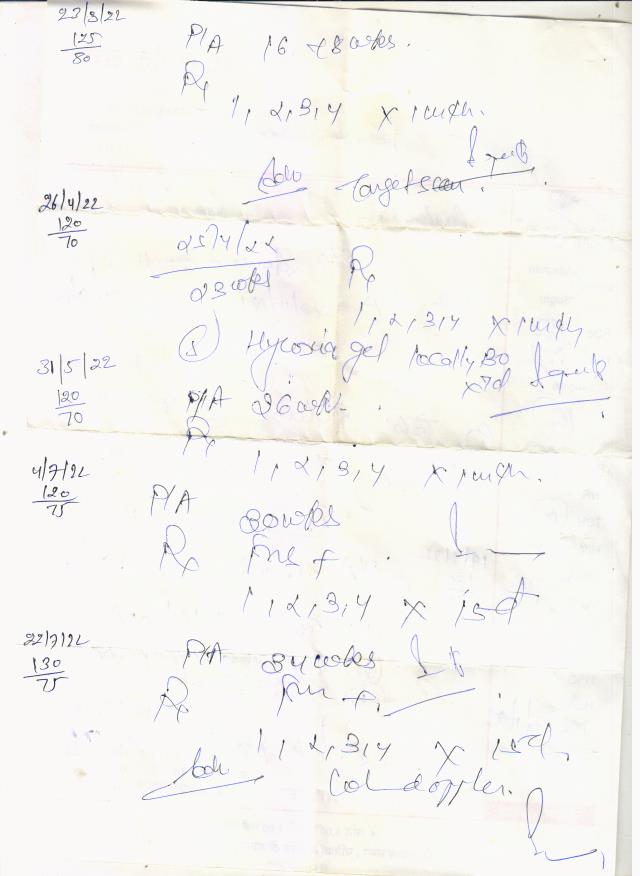 23/3/22
125
80
P/A 16 - 18 wks.
Rx
1, 2, 3, 4 x 1 mth.
Adv Target scan.
26/4/22
120
70
25/4/22
23 wks
Rx
1, 2, 3, 4 x 1 mth
5) gel locally BD
x 7d
31/5/22
120
70
P/A 26 wk.
Rx
1, 2, 3, 4 x 1 mth.
4/7/22
120
75
P/A 30 wks
Rx FHS +
1, 2, 3, 4 x 15 d
22/7/22
130
75
P/A 34 wks
Rx +
1, 2, 3, 4 x 15 d
Adv Col doppler.